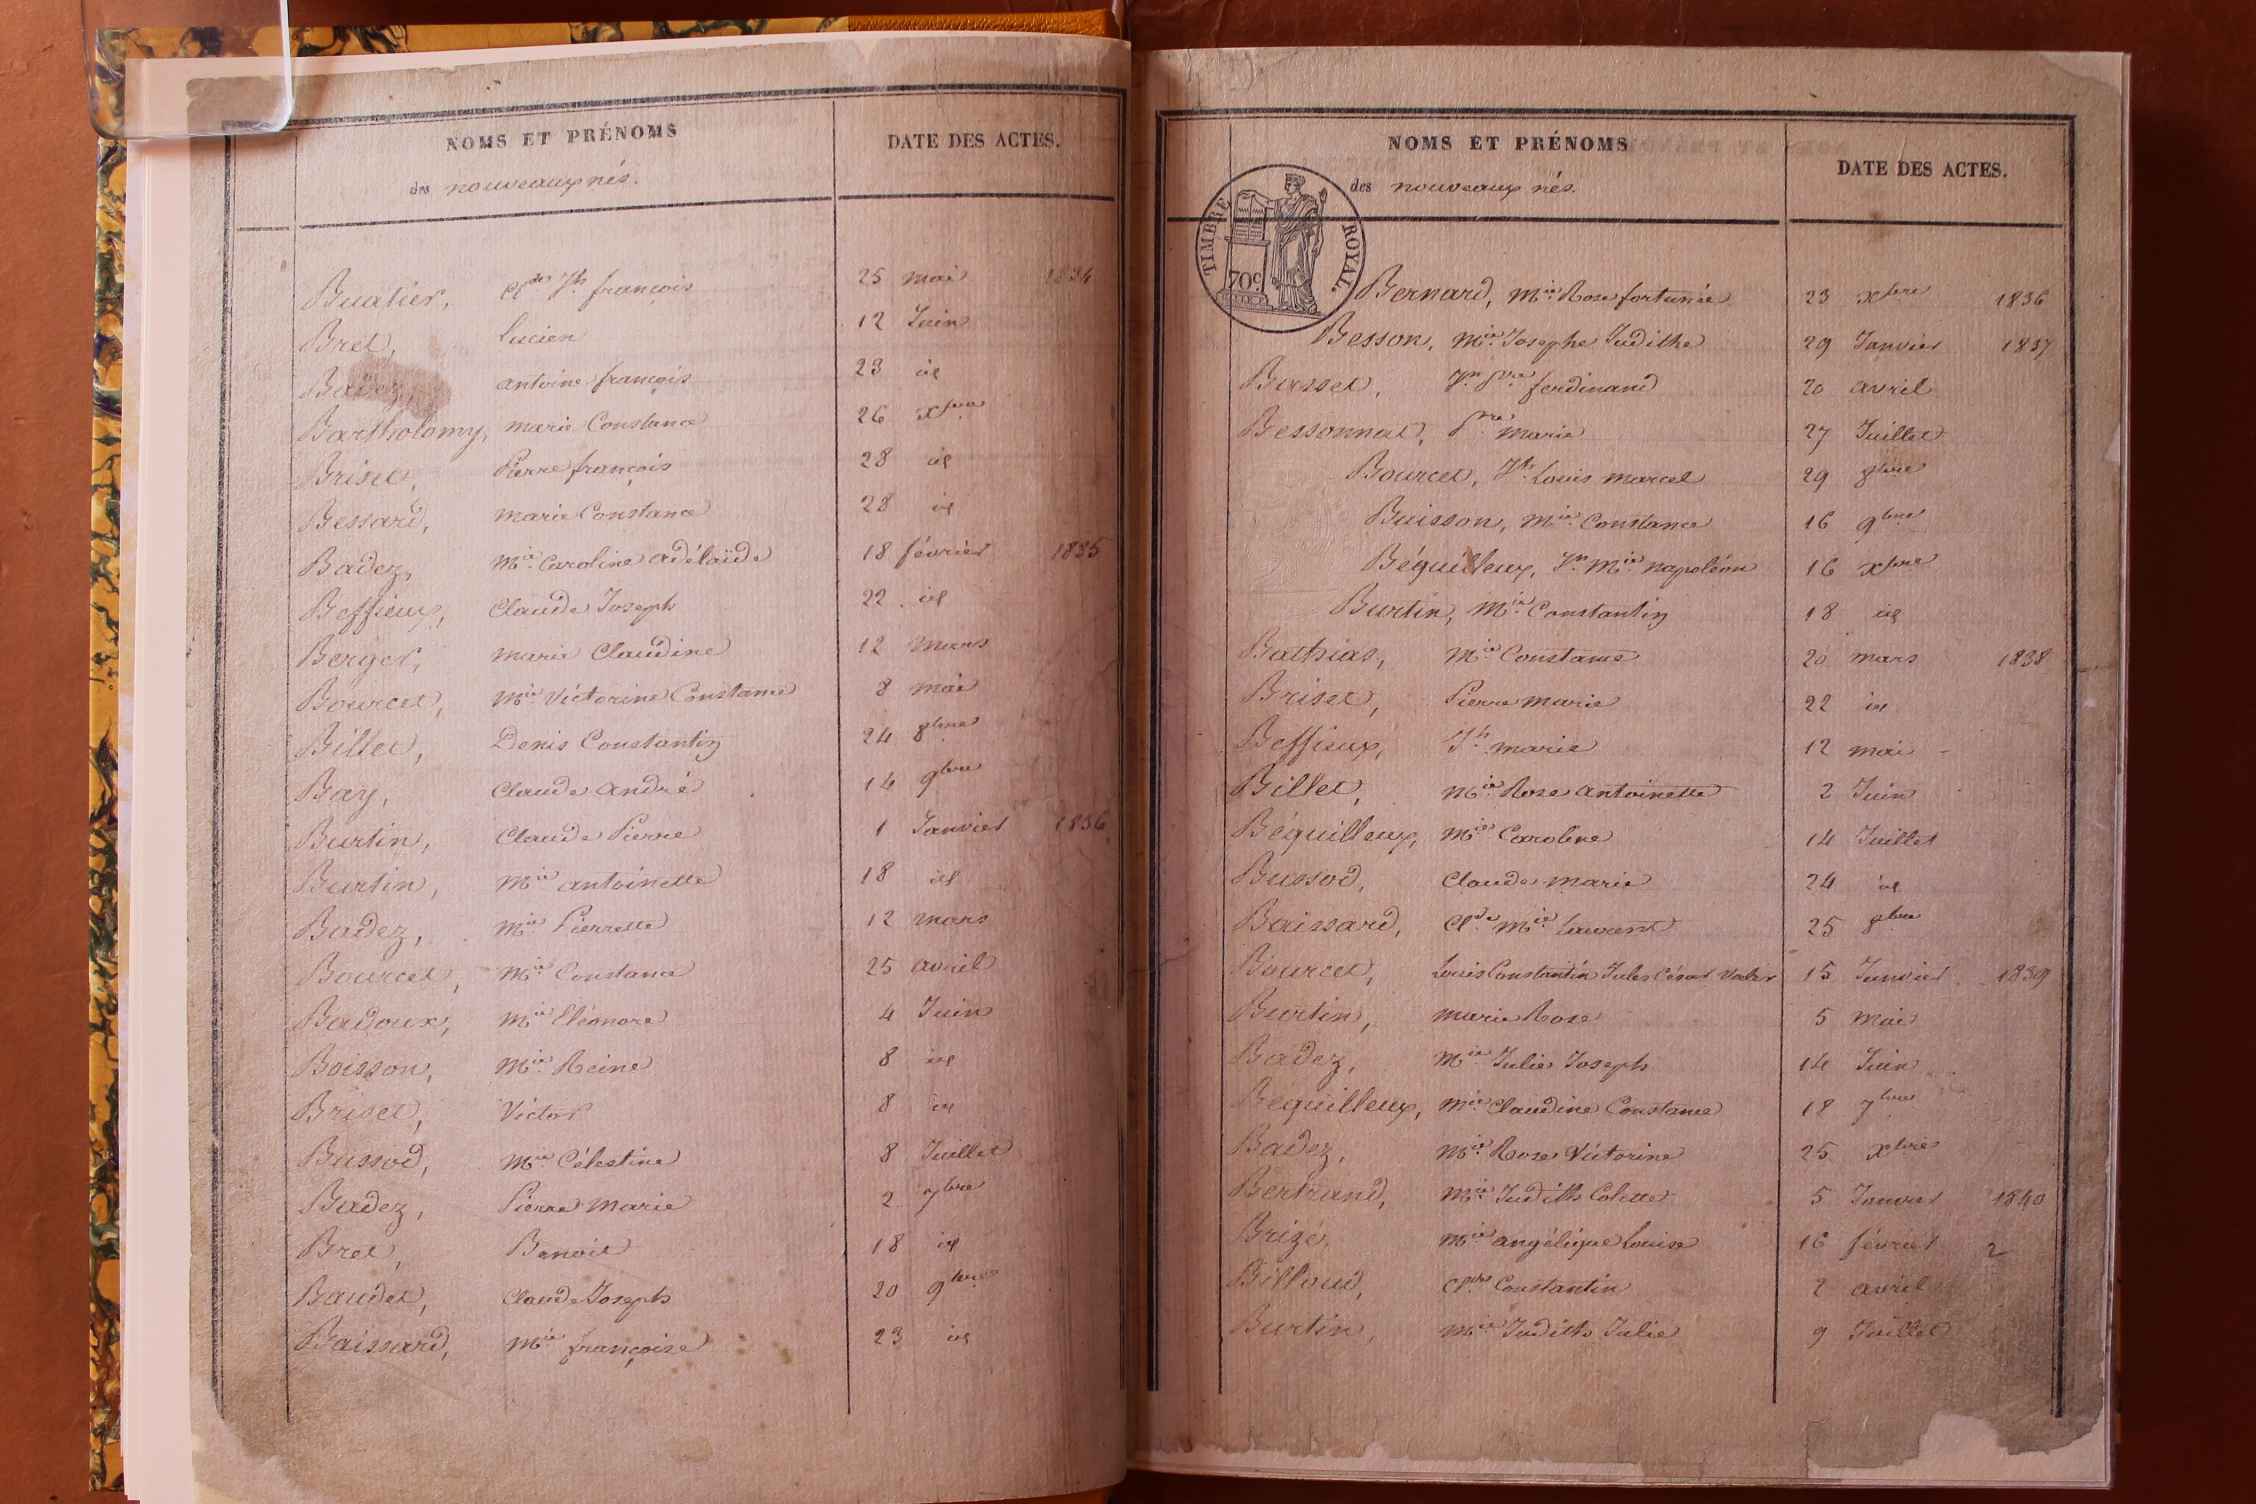 NOMS ET PRÉNOMS
DATE DES ACTES.
des nouveaux nés.
Buatier, Cl.de Jh. françois 25 mai 1834
Bret, Lucien 12 Juin
Badez, antoine françois 23 id
Bartholomy, marie Constance 26 xbre
Briset, Pierre françois 28 id
Bessard, marie Constance 28 id
Badez, Mie Caroline adélaïde 18 février 1835
Beffieux, Claude Joseph 22 id
Berger, marie Claudine 12 mars
Bourcet, Mie Victorine Constance 8 mai
Billet, Denis Constantin 24 8bre
Bay, Claude andré 14 9bre
Burtin, Claude Pierre 1 Janvier 1836
Burtin, Mie antoinette 18 id
Badez, Mie Pierrette 12 mars
Bourcet, Mie Constance 25 avril
Badoux, Mie Eléonore 4 Juin
Boisson, Mie Reine 8 id
Briset, Victor 8 id
Bussod, Mie Célestine 8 Juillet
Badez, Pierre marie 2 7bre
Bret, Benoit 18 id
Baudet, Claude Joseph 20 9bre
Baissard, Mie françoise 23 id
NOMS ET PRÉNOMS
DATE DES ACTES.
des nouveaux nés.
TIMBRE ROYAL.
70c.
Bernard, Mie Rose fortunée 23 xbre 1836
Besson, Mie Josephe Judithe 29 Janvier 1837
Basset, Jn Pre ferdinand 20 avril
Bessonnat, Pre marie 27 Juillet
Bourcet, Jh Louis marcel 29 8bre
Buisson, Mie Constance 16 9bre
Béguilleux, Jn Mie napoléon 16 xbre
Burtin, Mie Constantin 18 id
Bathias, Mie Constance 20 mars 1838
Briset, Pierre marie 22 id
Beffieux, Jh marie 12 mai
Billet, Mie Rose antoinette 2 Juin
Béguilleux, Mie Caroline 14 Juillet
Bussod, Claude marie 24 id
Baissard, Cl.de Mie Laurent 25 8bre
Bourcet, Louis Constantin Jules César 15 Janvier 1839
Burtin, marie Rose 5 mai
Badez, Mie Julie Joseph 14 Juin
Béguilleux, Mie Claudine Constance 18 7bre
Badez, Mie Rose Victorine 25 xbre
Bertrand, Mie Judith Colette 5 Janvier 1840
Brizé, Mie angélique Louise 16 février 2
Billoud, Cl.de Constantin 2 avril
Burtin, Mie Judith Julie 9 Juillet